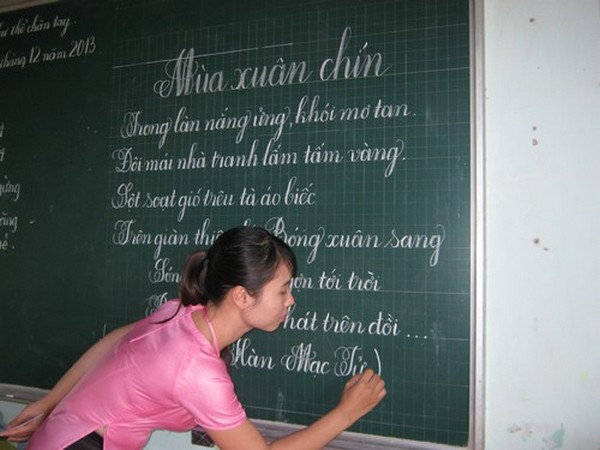 thể chân tay.
tháng 12 năm 2013
Mùa xuân chín
Trong làn nắng ửng, khói mơ tan.
Đôi mái nhà tranh lấm tấm vàng.
Sột soạt gió trêu tà áo biếc
Trên giàn thiên lí Bóng xuân sang
Són gợn tới trời
hát trên đồi ...
Hàn Mạc Tử )